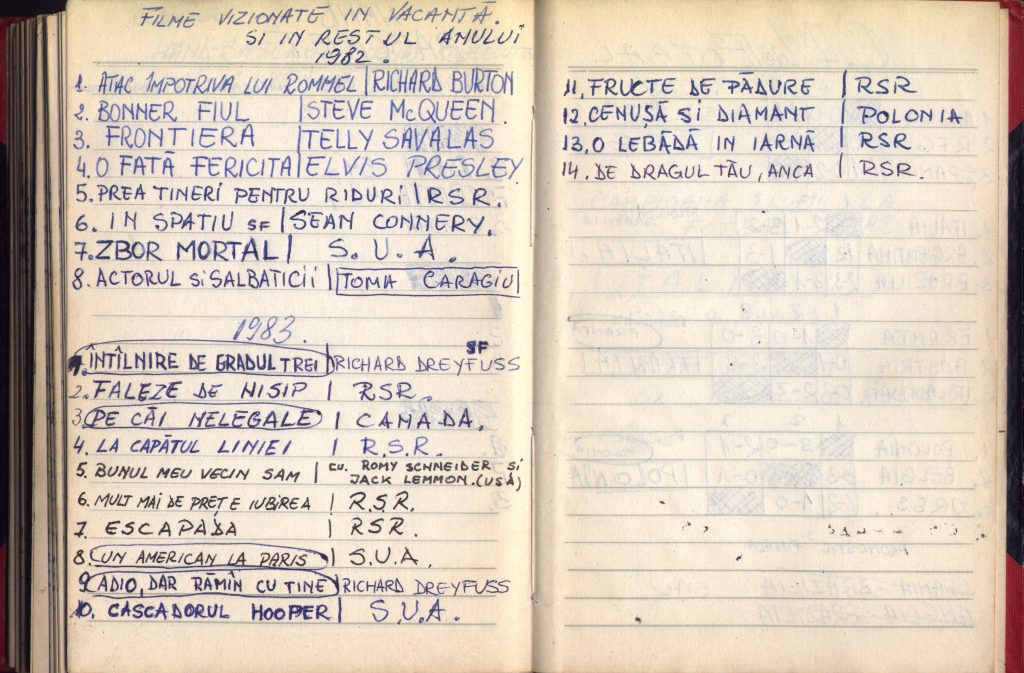 FILME VIZIONATE IN VACANTĂ.
SI IN RESTUL ANULUI
1982.
1. ATAC ÎMPOTRIVA LUI ROMMEL | RICHARD BURTON
2. BONNER FIUL | STEVE McQUEEN.
3. FRONTIERA | TELLY SAVALAS
4. O FATĂ FERICITA | ELVIS PRESLEY
5. PREA TINERI PENTRU RIDURI | RSR.
6. IN SPATIU SF | SEAN CONNERY.
7. ZBOR MORTAL | S.U.A.
8. ACTORUL SI SALBATICII | TOMA CARAGIU
1983.
1. ÎNTÎLNIRE DE GRADUL TREI | RICHARD DREYFUSS SF
2. FALEZE DE NISIP | RSR.
3 PE CĂI NELEGALE | CANADA.
4. LA CAPĂTUL LINIEI | R.S.R.
5. BUNUL MEU VECIN SAM | CU. ROMY SCHNEIDER SI
JACK LEMMON. (USA)
6. MULT MAI DE PREȚ E IUBIREA | R.S.R.
7. ESCAPADA | RSR.
8. UN AMERICAN LA PARIS | S.U.A.
9 ADIO, DAR RĂMÎN CU TINE | RICHARD DREYFUSS
10. CASCADORUL HOOPER | S.U.A.
11. FRUCTE DE PĂDURE | RSR
12. CENUȘĂ SI DIAMANT | POLONIA
13. O LEBĂDĂ IN IARNĂ | RSR
14. DE DRAGUL TĂU, ANCA | RSR.